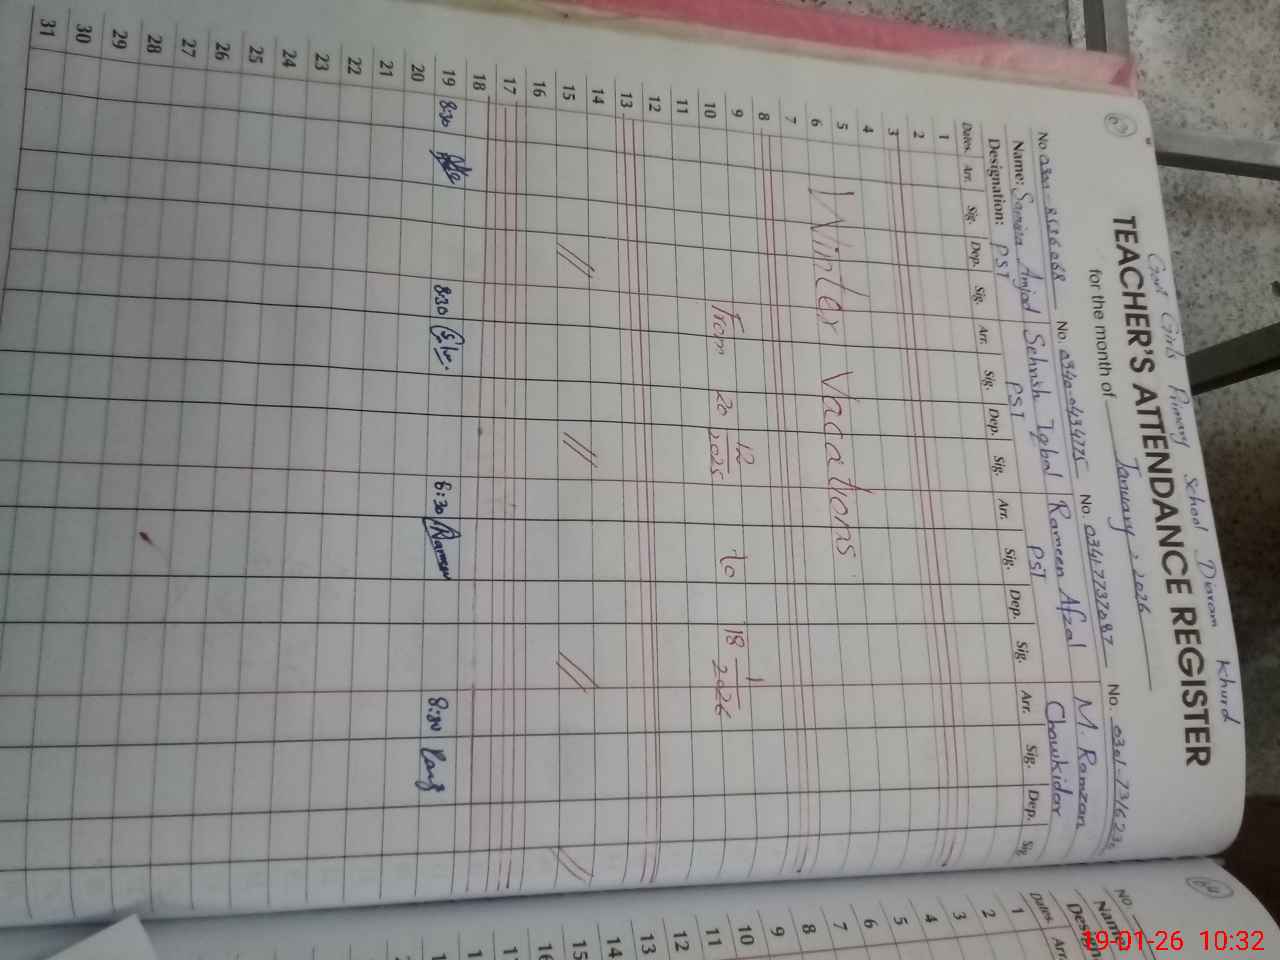 63
Govt Girls Primary School Dioram Khurd
TEACHER'S ATTENDANCE REGISTER
for the month of January, 2026
No. No. 0340-0434775 No. 03417737087 No. 0301-731623
Name: Samina Amjad Sehrish Iqbal Rameen Afzal M. Ramzan
Designation: PST PST PST Chowkidar
Dates. Arr. Sig. Dep. Sig. Arr. Sig. Dep. Sig. Arr. Sig. Dep. Sig. Arr. Sig. Dep. Sig
1
2
3
4
5
6 Winter Vacations
7
8
9
10 From 20 12 2025 to 18 1 2026
11
12
13
14
15 // // // //
16
17
18
19 8:30 8:30 8:30 Rameen 8:30
20
21
22
23
24
25
26
27
28
29
30
31
64
No.
Name
Desig
Dates. Arr.
1
2
3
4
5
6
7
8
9
10
11
12
13
14
15
16
19-01-26 10:32